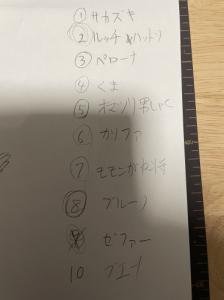 ① サカズキ
② ルッチ ハットリ
③ ペローナ
④ くま
⑤ オマツリ男しゃく
⑥ カリファ
⑦ モモンガ中将
⑧ ブルーノ
9 ゼファー
10 ブエナ